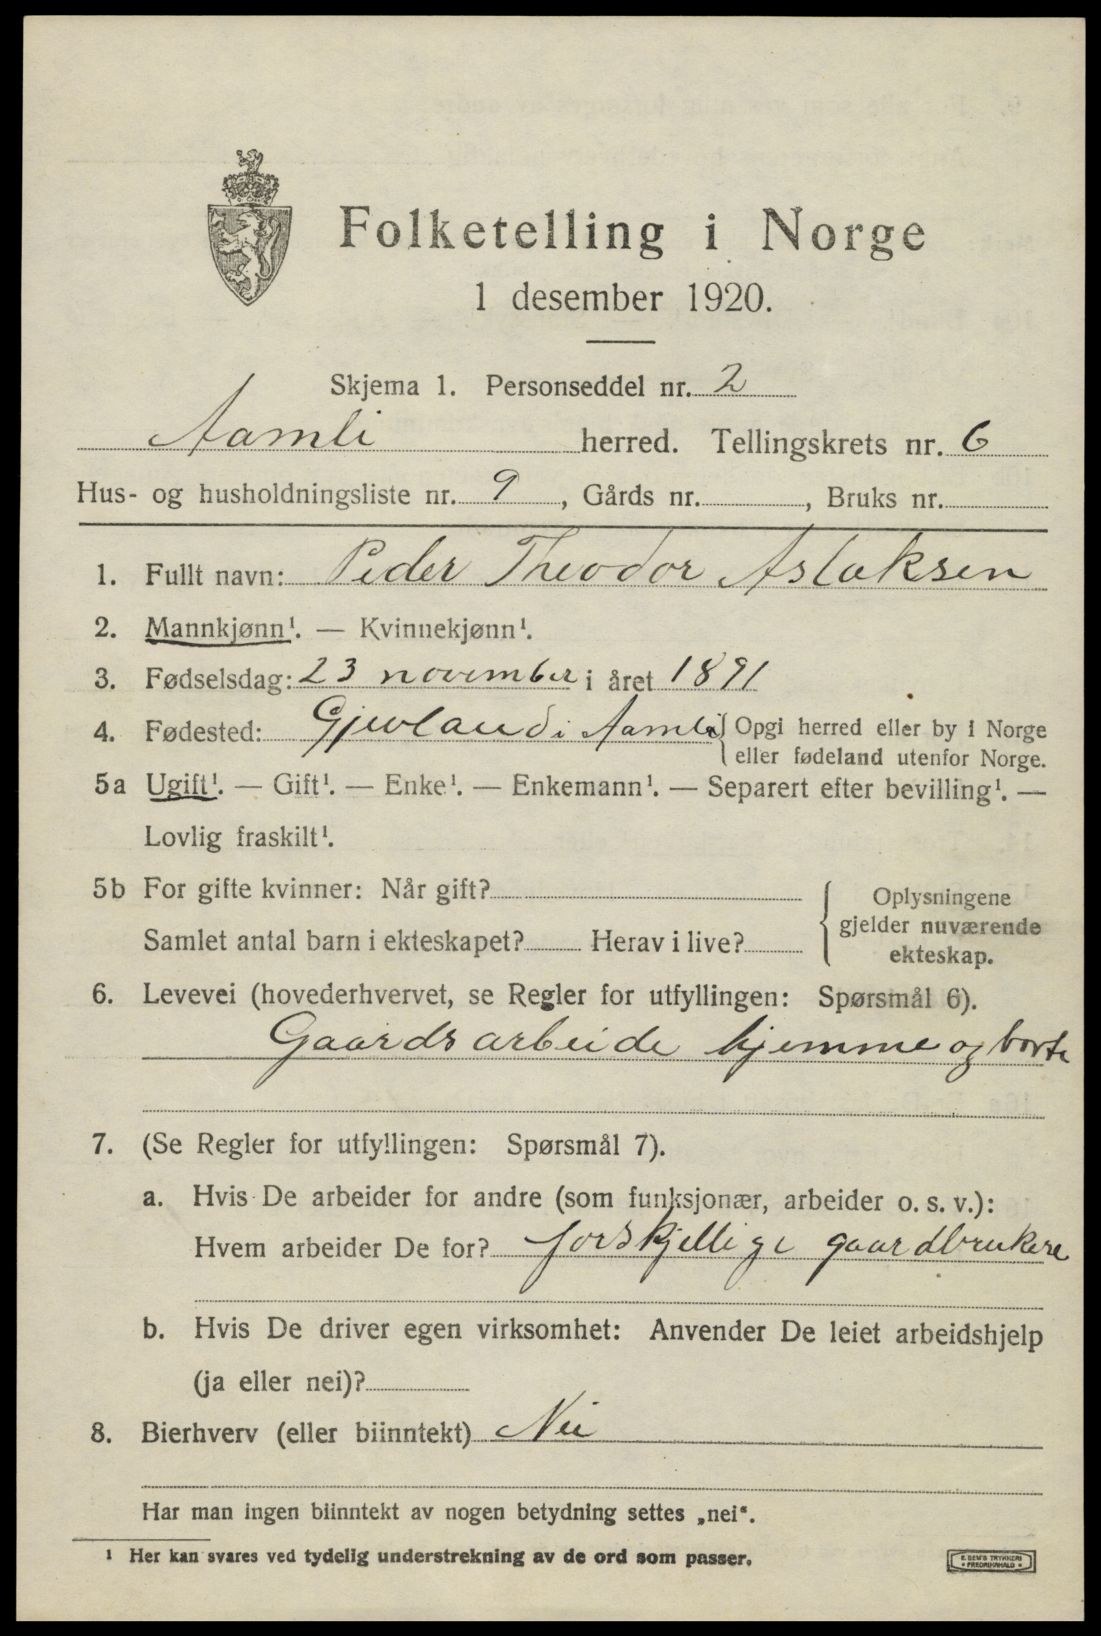 Folketelling i Norge
1 desember 1920.
Skjema 1. Personseddel nr. 2
Aamli herred. Tellingskrets nr. 6
Hus- og husholdningsliste nr. 9, Gårds nr. , Bruks nr.
1. Fullt navn: Peder Theodor Aslaksen
2. Mannkjønn¹. — Kvinnekjønn¹.
3. Fødselsdag: 23 november i året 1891
4. Fødested: Gjevland i Aamli { Opgi herred eller by i Norge
eller fødeland utenfor Norge.
5a Ugift¹. — Gift¹. — Enke¹. — Enkemann¹. — Separert efter bevilling¹. —
Lovlig fraskilt¹.
5b For gifte kvinner: Når gift?
Samlet antal barn i ekteskapet? Herav i live?
{ Oplysningene
gjelder nuværende
ekteskap.
6. Levevei (hovederhvervet, se Regler for utfyllingen: Spørsmål 6).
Gaardsarbeide hjemme og borte
7. (Se Regler for utfyllingen: Spørsmål 7).
a. Hvis De arbeider for andre (som funksjonær, arbeider o. s. v.):
Hvem arbeider De for? forskjellige gaardbrukere
b. Hvis De driver egen virksomhet: Anvender De leiet arbeidshjelp
(ja eller nei)?
8. Bierhverv (eller biinntekt) Nei
Har man ingen biinntekt av nogen betydning settes „nei“.
¹ Her kan svares ved tydelig understrekning av de ord som passer.
E. SEM'S TRYKKERI
• FREDRIKSHALD •